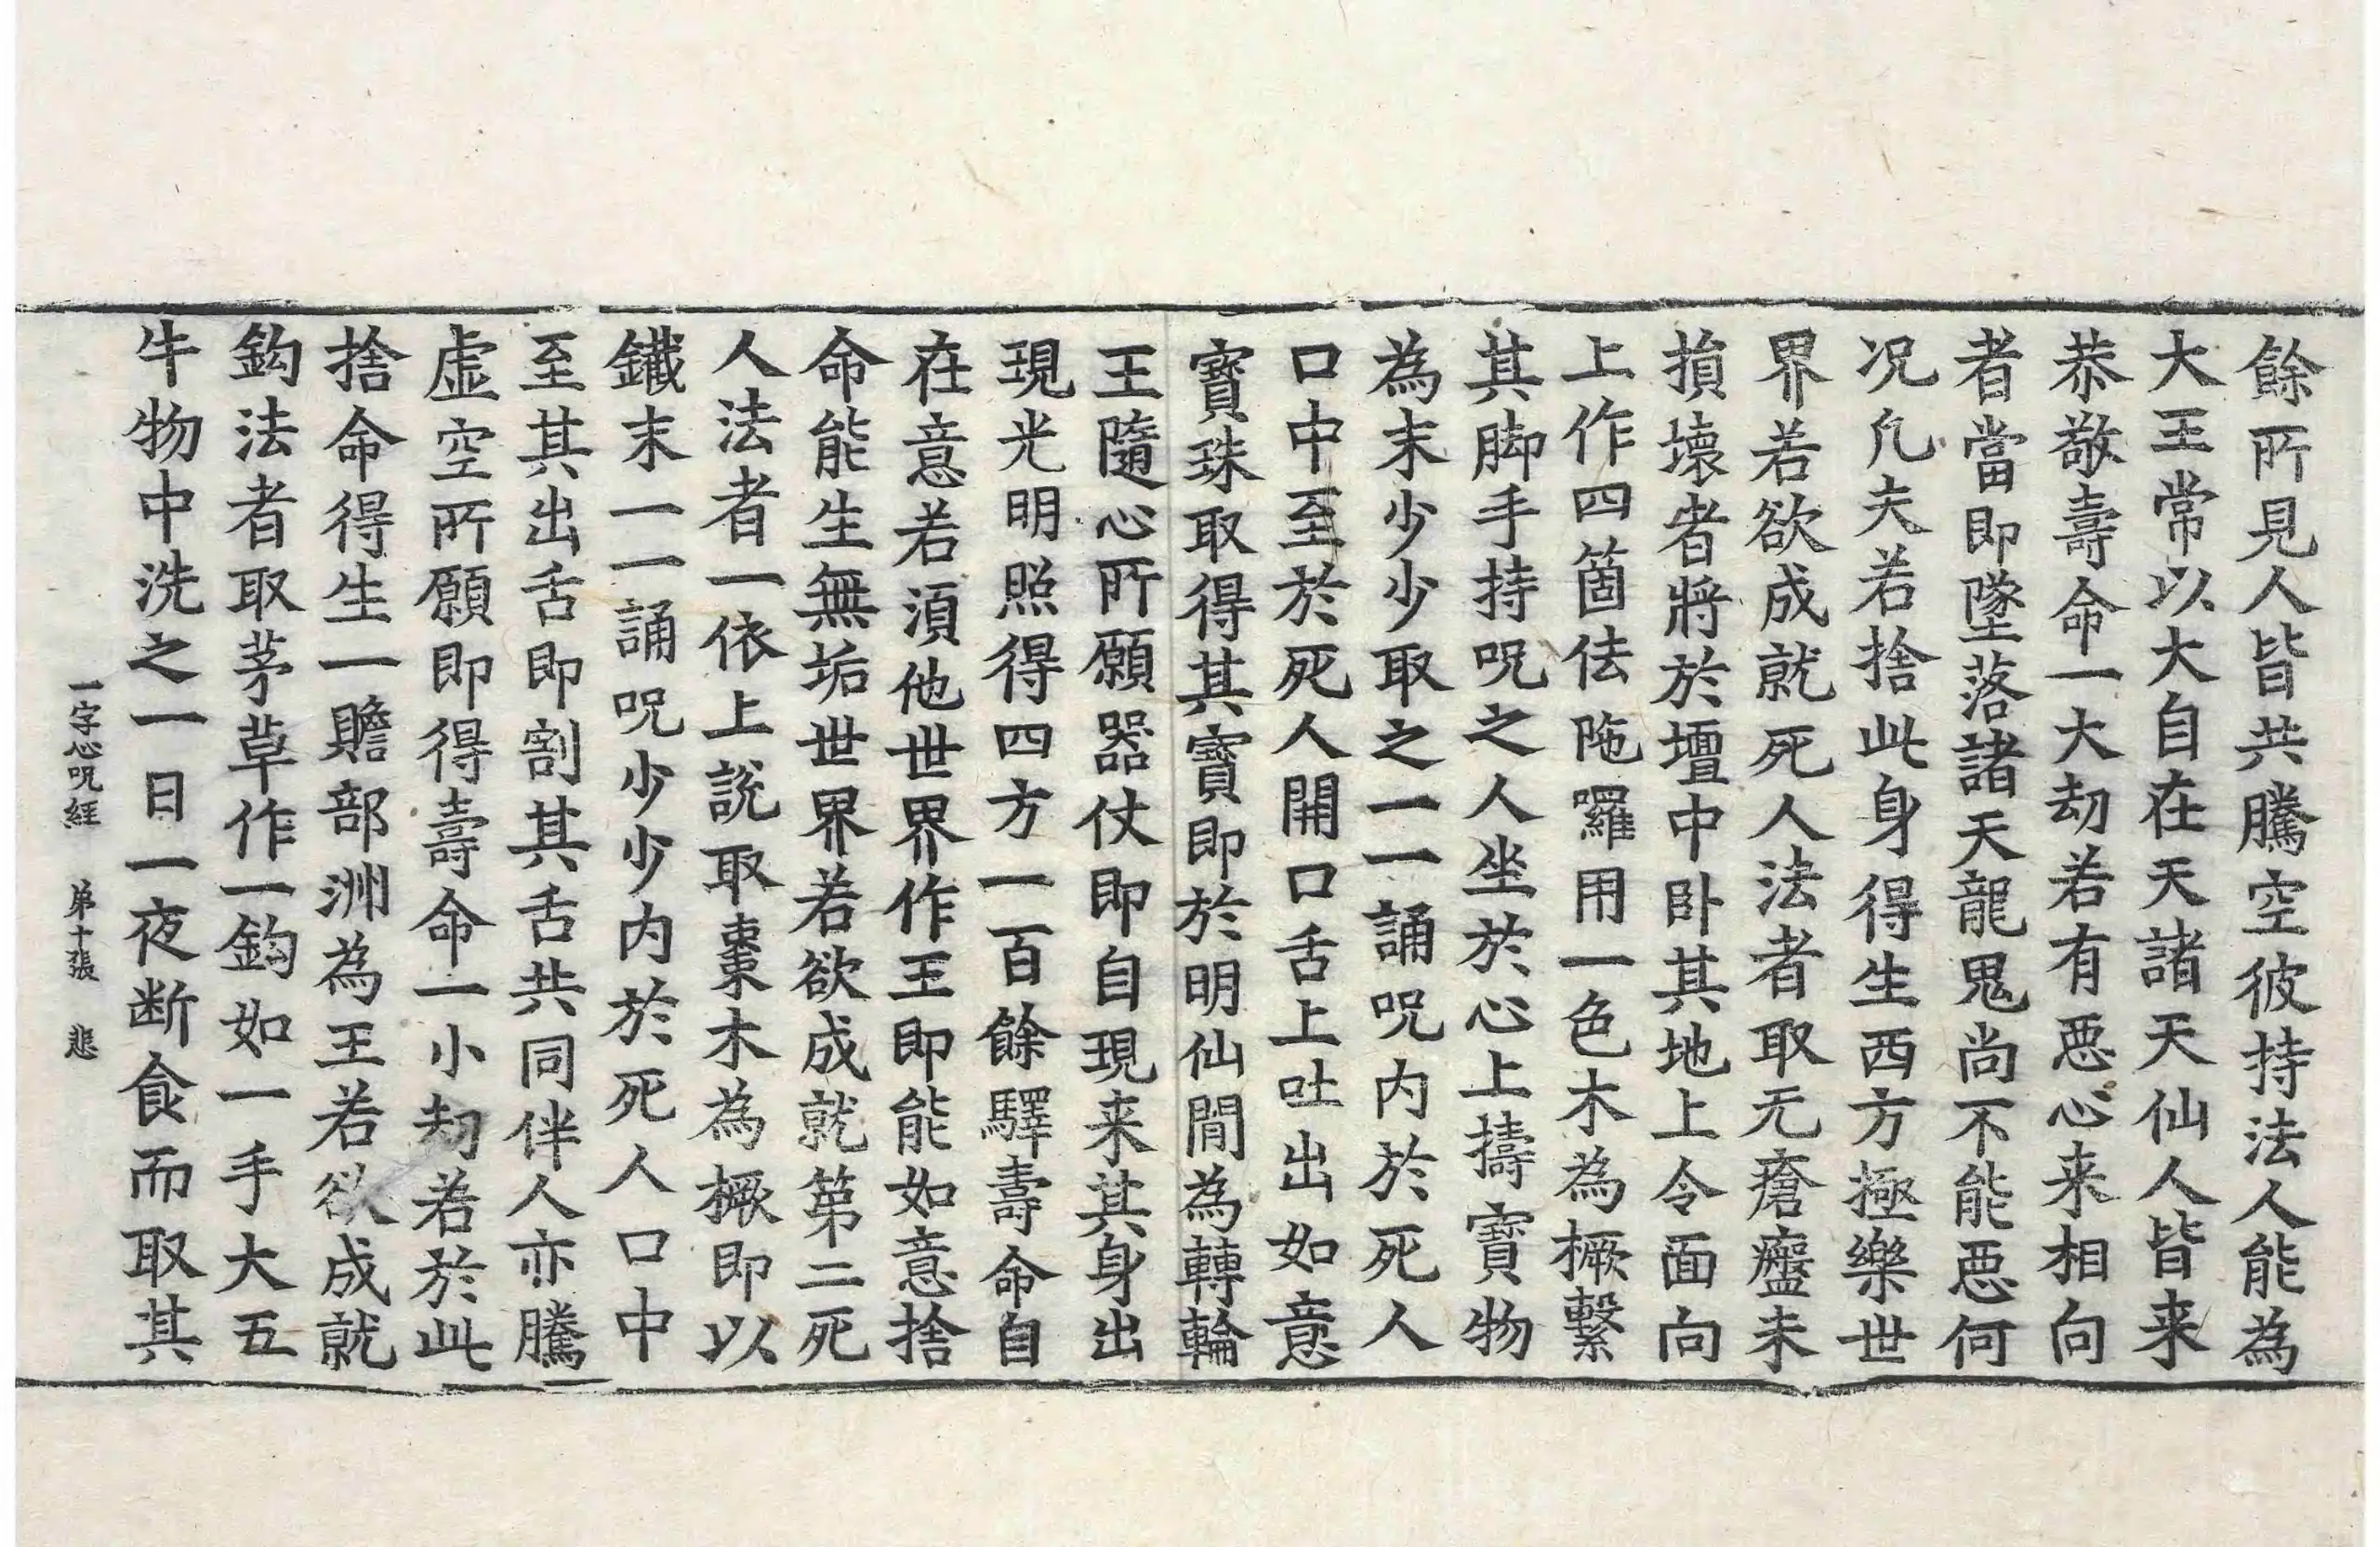 餘所見人皆共騰空彼持法人能為
大王常以大自在天諸天仙人皆来
恭敬壽命一大劫若有惡心来相向
者當即墜落諸天龍鬼尚不能惡何
况凡夫若捨此身得生西方極樂世
界若欲成就死人法者取无瘡癧未
損壞者將於壇中卧其地上令面向
上作四箇佉陁囉用一色木為橛繫
其脚手持呪之人坐於心上擣寶物
為末少少取之一一誦呪内於死人
口中至於死人開口舌上吐出如意
寶珠取得其寶即於明仙間為轉輪
王隨心所願器仗即自現来其身出
現光明照得四方一百餘驛壽命自
在意若須他世界作王即能如意捨
命能生無垢世界若欲成就第二死
人法者一依上說取棗木為橛即以
鐵末一一誦呪少少内於死人口中
至其出舌即割其舌共同伴人亦騰
虚空所願即得壽命一小劫若於此
捨命得生一贍部洲為王若欲成就
鈎法者取茅草作一鈎如一手大五
牛物中洗之一日一夜断食而取其
一字心呪經 弟十張 悲